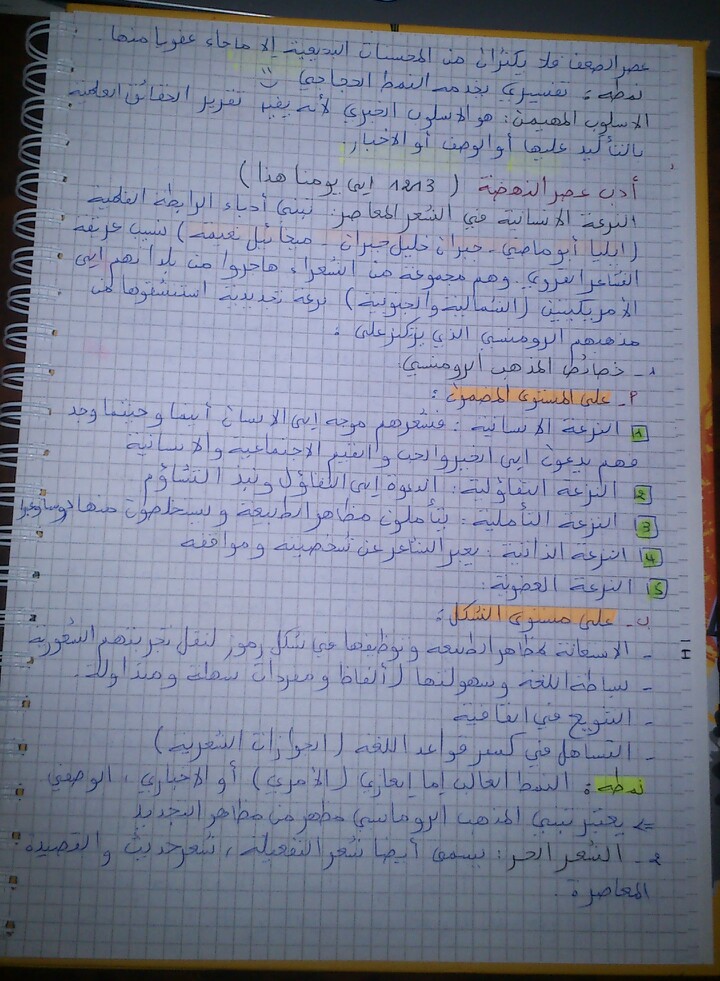 عصر الضعف فلا يكثران من المحسنات البديعية إلا ما جاء عفويا منها.
نمطه: تفسيري يخدمه النمط الحجاجي
الاسلوب المهيمن: هو الاسلوب الخبري لأنه يفيد تقرير الحقائق العلمية
بالتأكيد عليها أو الوصف أو الاخبار
أدب عصر النهضة ( 1213 إلى يومنا هذا )
النزعة الانسانية في الشعر المعاصر: تبنى أدباء الرابطة القلمية
(ايليا أبو ماضي - جبران خليل جبران - ميخائيل نعيمة)
الشاعر القروي وهم مجموعة من الشعراء هاجروا من بلدانهم إلى
الأمريكيتين (الشمالية والجنوبية) نزعة تجديدية استنشقوها من
مذهبهم الرومنسي الذي يرتكز على:
1- خصائص المذهب الرومنسي
أ- على المستوى المضمون:
1 النزعة الانسانية: فشعرهم موجه إلى الانسان أينما وحيثما وجد
فهم يدعون إلى الخير والحب والقيم الاجتماعية والانسانية
2 النزعة التفاؤلية: الدعوة إلى التفاؤل ونبذ التشاؤم
3 النزعة التأملية: يتأملون مظاهر الطبيعة ويستخلصون منها
4 النزعة الذاتية: يعبر الشاعر عن شخصيته ومواقفه
5 النزعة العضوية:
ب- على مستوى الشكل:
- الاستعانة بمظاهر الطبيعة وتوظيفها في شكل رموز لنقل تجربتهم الشعورية
- بساطة اللغة وسهولتها (ألفاظ ومفردات سهلة ومتداولة.
- التنويع في القافية
- التساهل في كسر قواعد اللغة (الجوازات الشعرية)
نمطه: النمط الغالب إما إيعازي (الأمري) أو الاخباري، الوصفي
<= يعتبر تبني المذهب الروماسي مظهر من مظاهر التجديد
2- الشعر الحر: يسمى أيضا شعر التفعيلة، شعر حديث والقصيدة
المعاصرة.